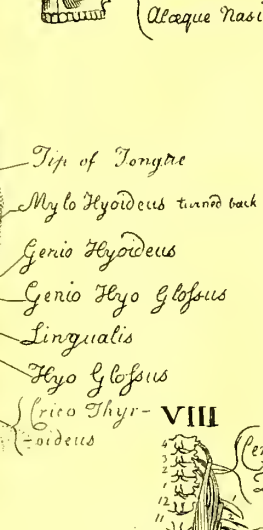 Alæque Nasi
Tip of Tongue
Mylo Hyoideus turned back
Genio Hyoideus
Genio Hyo Gloſsus
Lingualis
Hyo Gloſsus
Crico Thyr-
-oideus
VIII
4
3
2
1
12
11